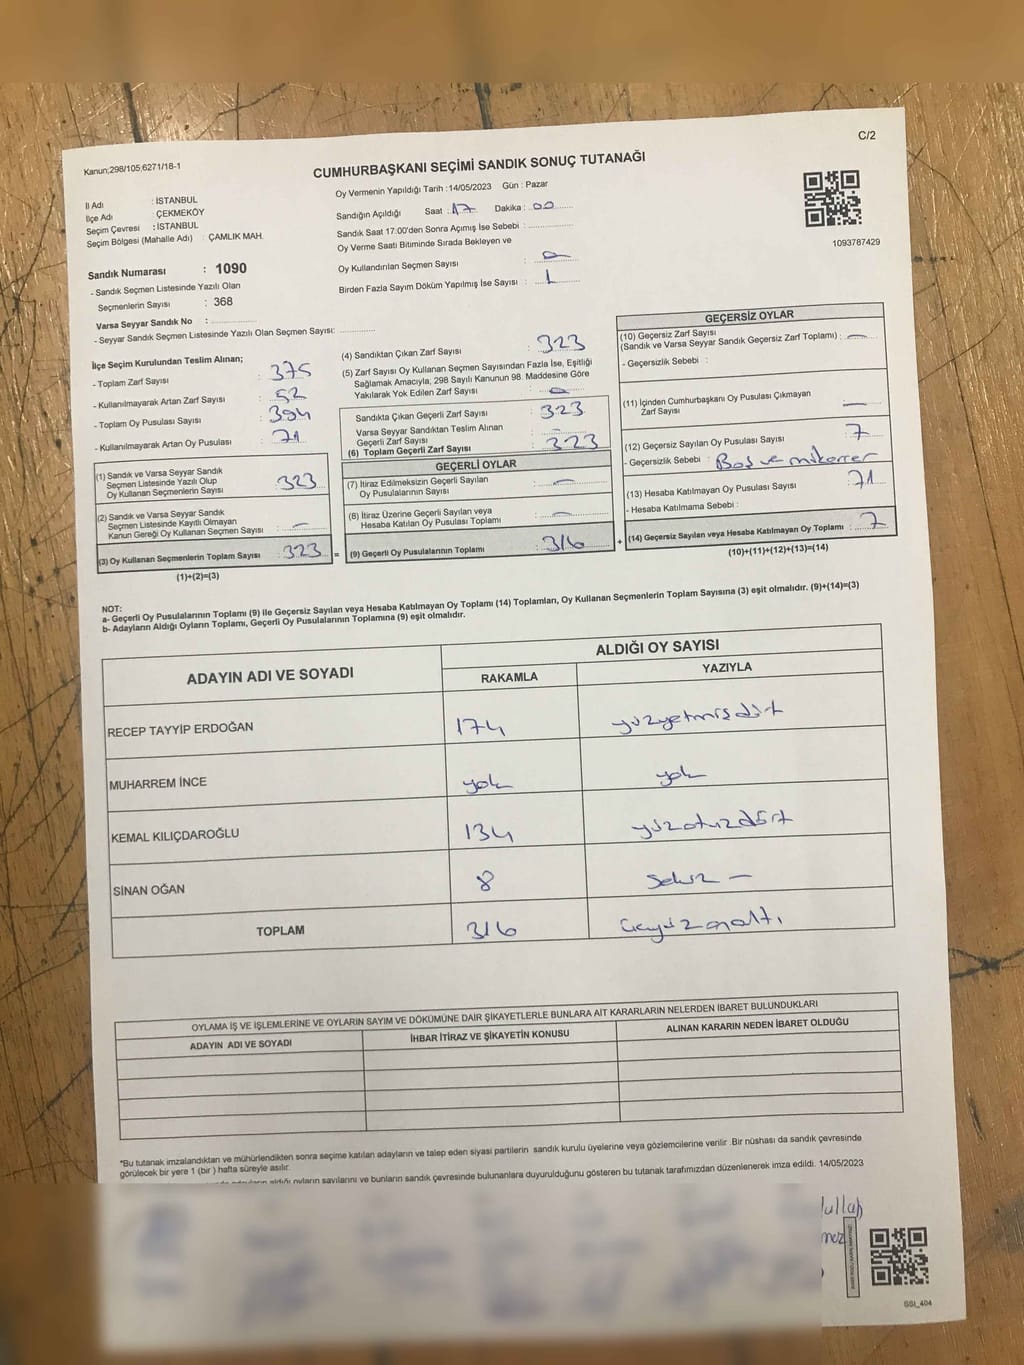 C/2
Kanun;298/105;6271/18-1
CUMHURBAŞKANI SEÇİMİ SANDIK SONUÇ TUTANAĞI
İl Adı : İSTANBUL
İlçe Adı : ÇEKMEKÖY
Seçim Çevresi : İSTANBUL
Seçim Bölgesi (Mahalle Adı) : ÇAMLIK MAH.
Sandık Numarası : 1090
- Sandık Seçmen Listesinde Yazılı Olan
Seçmenlerin Sayısı : 368
Varsa Seyyar Sandık No :
- Seyyar Sandık Seçmen Listesinde Yazılı Olan Seçmen Sayısı:
Oy Vermenin Yapıldığı Tarih :14/05/2023 Gün : Pazar
Sandığın Açıldığı Saat : 17 Dakika : 00
Sandık Saat 17:00'den Sonra Açımış İse Sebebi :
Oy Verme Saati Bitiminde Sırada Bekleyen ve
Oy Kullandırılan Seçmen Sayısı : 0
Birden Fazla Sayım Döküm Yapılmış İse Sayısı : 1
1093787429
İlçe Seçim Kurulundan Teslim Alınan;
- Toplam Zarf Sayısı : 375
- Kullanılmayarak Artan Zarf Sayısı : 52
- Toplam Oy Pusulası Sayısı : 394
- Kullanılmayarak Artan Oy Pusulası : 71
(1) Sandık ve Varsa Seyyar Sandık
Seçmen Listesinde Yazılı Olup
Oy Kullanan Seçmenlerin Sayısı : 323
(2) Sandık ve Varsa Seyyar Sandık
Seçmen Listesinde Kayıtlı Olmayan
Kanun Gereği Oy Kullanan Seçmen Sayısı : —
(3) Oy Kullanan Seçmenlerin Toplam Sayısı : 323 =
(1)+(2)=(3)
(4) Sandıktan Çıkan Zarf Sayısı : 323
(5) Zarf Sayısı Oy Kullanan Seçmen Sayısından Fazla İse, Eşitliği
Sağlamak Amacıyla, 298 Sayılı Kanunun 98. Maddesine Göre
Yakılarak Yok Edilen Zarf Sayısı : 0
Sandıkta Çıkan Geçerli Zarf Sayısı : 323
Varsa Seyyar Sandıktan Teslim Alınan
Geçerli Zarf Sayısı : —
(6) Toplam Geçerli Zarf Sayısı : 323
GEÇERLİ OYLAR
(7) İtiraz Edilmeksizin Geçerli Sayılan
Oy Pusulalarının Sayısı : —
(8) İtiraz Üzerine Geçerli Sayılan veya
Hesaba Katılan Oy Pusulası Toplamı : —
(9) Geçerli Oy Pusulalarının Toplamı : 316 +
GEÇERSİZ OYLAR
(10) Geçersiz Zarf Sayısı
(Sandık ve Varsa Seyyar Sandık Geçersiz Zarf Toplamı) : —
- Geçersizlik Sebebi :
(11) İçinden Cumhurbaşkanı Oy Pusulası Çıkmayan
Zarf Sayısı : —
(12) Geçersiz Sayılan Oy Pusulası Sayısı : 7
- Geçersizlik Sebebi : Boş ve mükerrer
(13) Hesaba Katılmayan Oy Pusulası Sayısı : 71
- Hesaba Katılmama Sebebi :
(14) Geçersiz Sayılan veya Hesaba Katılmayan Oy Toplamı : 7
(10)+(11)+(12)+(13)=(14)
NOT:
a- Geçerli Oy Pusulalarının Toplamı (9) ile Geçersiz Sayılan veya Hesaba Katılmayan Oy Toplamı (14) Toplamları, Oy Kullanan Seçmenlerin Toplam Sayısına (3) eşit olmalıdır. (9)+(14)=(3)
b- Adayların Aldığı Oyların Toplamı, Geçerli Oy Pusulalarının Toplamına (9) eşit olmalıdır.
ADAYIN ADI VE SOYADI
ALDIĞI OY SAYISI
RAKAMLA YAZIYLA
RECEP TAYYİP ERDOĞAN 174 yüzyetmişdört
MUHARREM İNCE yok yok
KEMAL KILIÇDAROĞLU 134 yüzotuzdört
SİNAN OĞAN 8 Sekiz —
TOPLAM 316 üçyüzonaltı
OYLAMA İŞ VE İŞLEMLERİNE VE OYLARIN SAYIM VE DÖKÜMÜNE DAİR ŞİKAYETLERLE BUNLARA AİT KARARLARIN NELERDEN İBARET BULUNDUKLARI
ADAYIN ADI VE SOYADI İHBAR İTİRAZ VE ŞİKAYETİN KONUSU ALINAN KARARIN NEDEN İBARET OLDUĞU
*Bu tutanak imzalandıktan ve mühürlendikten sonra seçime katılan adayların ve talep eden siyasi partilerin sandık kurulu üyelerine veya gözlemcilerine verilir .Bir nüshası da sandık çevresinde
görülecek bir yere 1 (bir ) hafta süreyle asılır.
aldığı oyların sayılarını ve bunların sandık çevresinde bulunanlara duyurulduğunu gösteren bu tutanak tarafımızdan düzenlenerek imza edildi. 14/05/2023
SSI_404